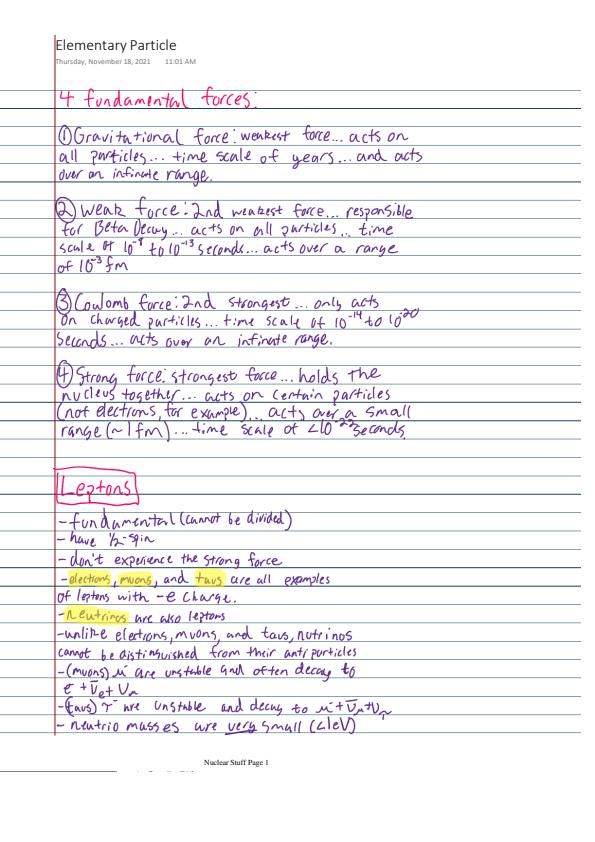 Elementary Particle
Thursday, November 18, 2021 11:01 AM
4 fundamental forces:
①Gravitational force: weakest force... acts on
all particles... time scale of years... and acts
over an infinate range.
② Weak force: 2nd weakest force... responsible
for Beta Decay... acts on all particles... time
scale of 10⁻⁸ to 10⁻¹³ seconds... acts over a range
of 10⁻³ fm
③ Coulomb force: 2nd strongest... only acts
on charged particles... time scale of 10⁻¹⁴ to 10⁻²⁰
seconds... acts over an infinate range.
④ Strong force: strongest force... holds the
nucleus together... acts on certain particles
(not electrons, for example)... acts over a small
range (~1 fm)... time scale of <10⁻²² seconds.
Leptons
- fundamental (cannot be divided)
- have ½-spin
- don't experience the strong force
- electrons, muons, and taus are all examples
of leptons with -e charge.
- Neutrinos are also leptons
- unlike electrons, muons, and taus, nutrinos
cannot be distinguished from their antiparticles
- (muons) μ⁻ are unstable and often decay to
e⁻ + ν̄e + νμ
- (taus) τ⁻ are unstable and decay to μ⁻ + ν̄μ + ντ
- neutrio masses are very small (<1eV)
Nuclear Stuff Page 1